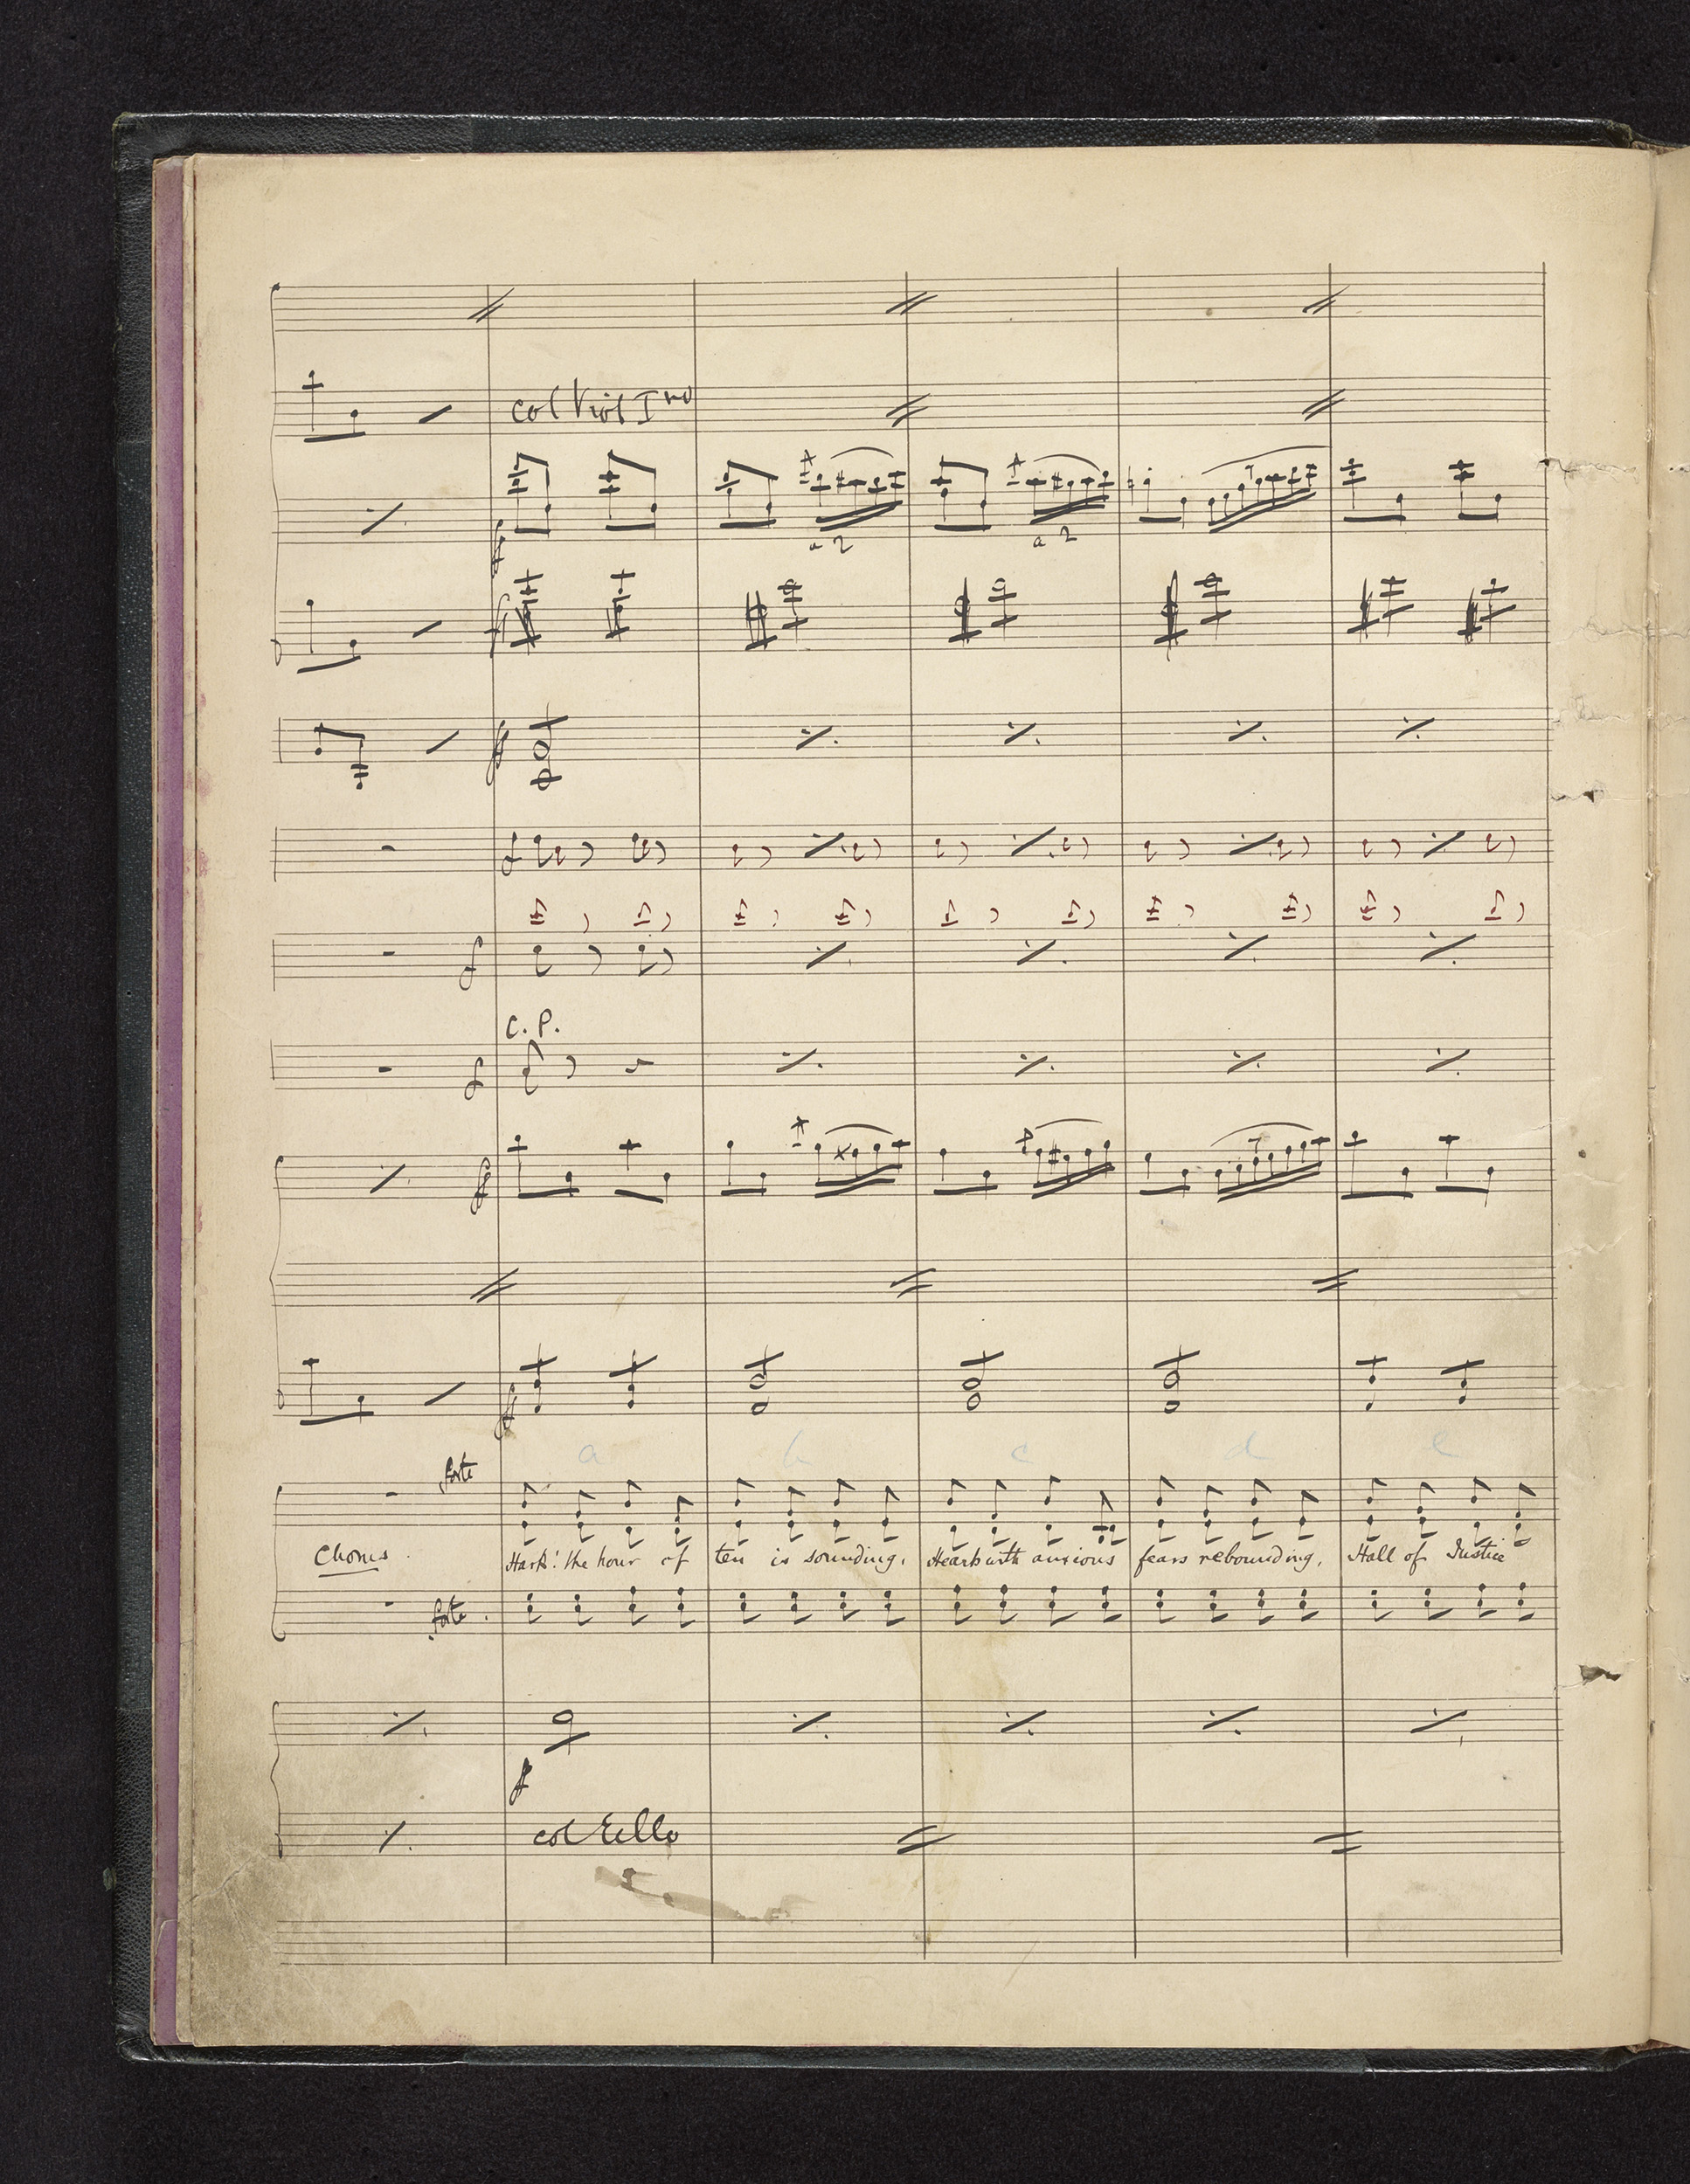 col Viol Imo
a 2 a 2
C. P.
a b c d e
forte
Chorus. Hark! the hour of ten is sounding, Hearts with anxious fears rebounding, Hall of Justice
forte.
f
col Cello